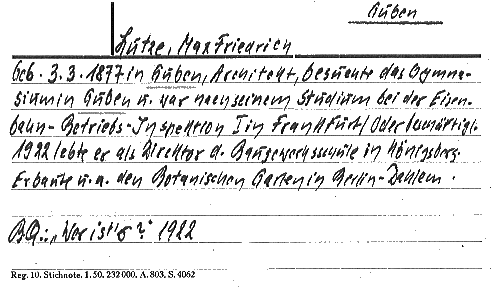 Guben
Lutze, Max Friedrich
Geb. 3.3.1877 in Guben, Architekt, besuchte das Gymna-
sium in Guben u. war nach seinem Studium bei der Eisen-
bahn-Betriebs-Inspektion I in Frankfurt/Oder beschäftigt.
1922 lebte er als Direktor d. Baugewerksschule in Königsberg.
Erbaute u.a. den Botanischen Garten in Berlin-Dahlem.
B.Q.: „Wer ist's?" 1922
Reg. 10. Stichnote. 1. 50. 232000. A. 803. S. 4062